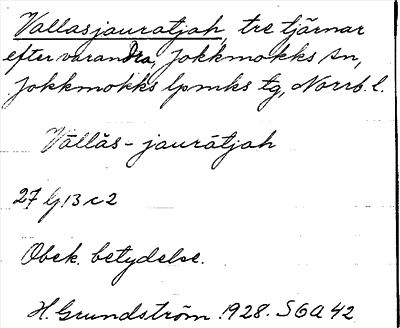 Vallasjauratjah, tre tjärnar
efter varandra, Jokkmokks sn,
Jokkmokks lpmks tg, Norrb. l.
Vāllăs-jaurátjah
27 G 13 c 2
Obek. betydelse.
H. Grundström 1928. SGA 42